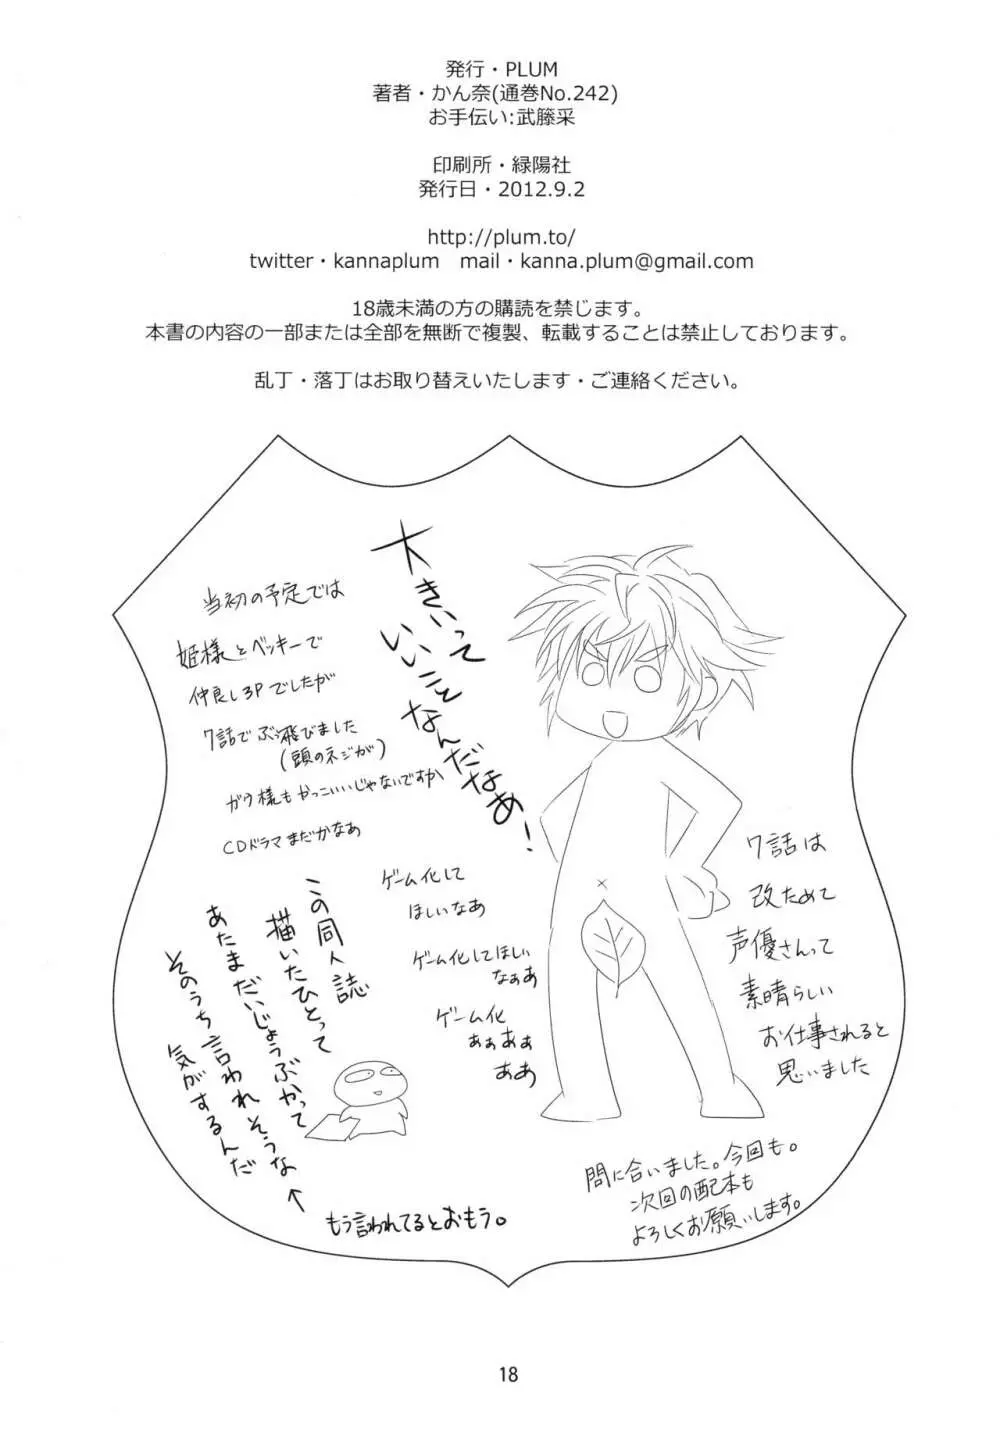 発行・PLUM
著者・かん奈(通巻No.242)
お手伝い:武藤采
印刷所・緑陽社
発行日・2012.9.2
http://plum.to/
twitter・kannaplum　mail・kanna.plum@gmail.com
18歳未満の方の購読を禁じます。
本書の内容の一部または全部を無断で複製、転載することは禁止しております。
乱丁・落丁はお取り替えいたします・ご連絡ください。
大きいって
いいこと
なんだなあ!
当初の予定では
姫様とベッキーで
仲良し3Pでしたが
7話でぶっ飛びました
(頭のネジが)
ガウ様もかっこいいじゃないですか
CDドラマまだかなあ
ゲーム化して
ほしいなあ
ゲーム化してほしい
なぁあ
ゲーム化
あぁあぁ
ああ
この同人誌
描いたひとって
あたまだいじょうぶかって
そのうち言われそうな
気がするんだ
↑
もう言われてるとおもう。
7話は
改ためて
声優さんって
素晴らしい
お仕事されると
思いました
間に合いました。今回も。
次回の配本も
よろしくお願いします。
18